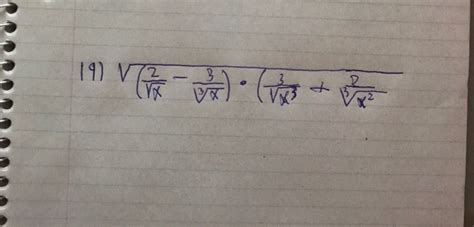 19) √((2/√x − 3/∛x) · (3/√x³ + 2/∛x²